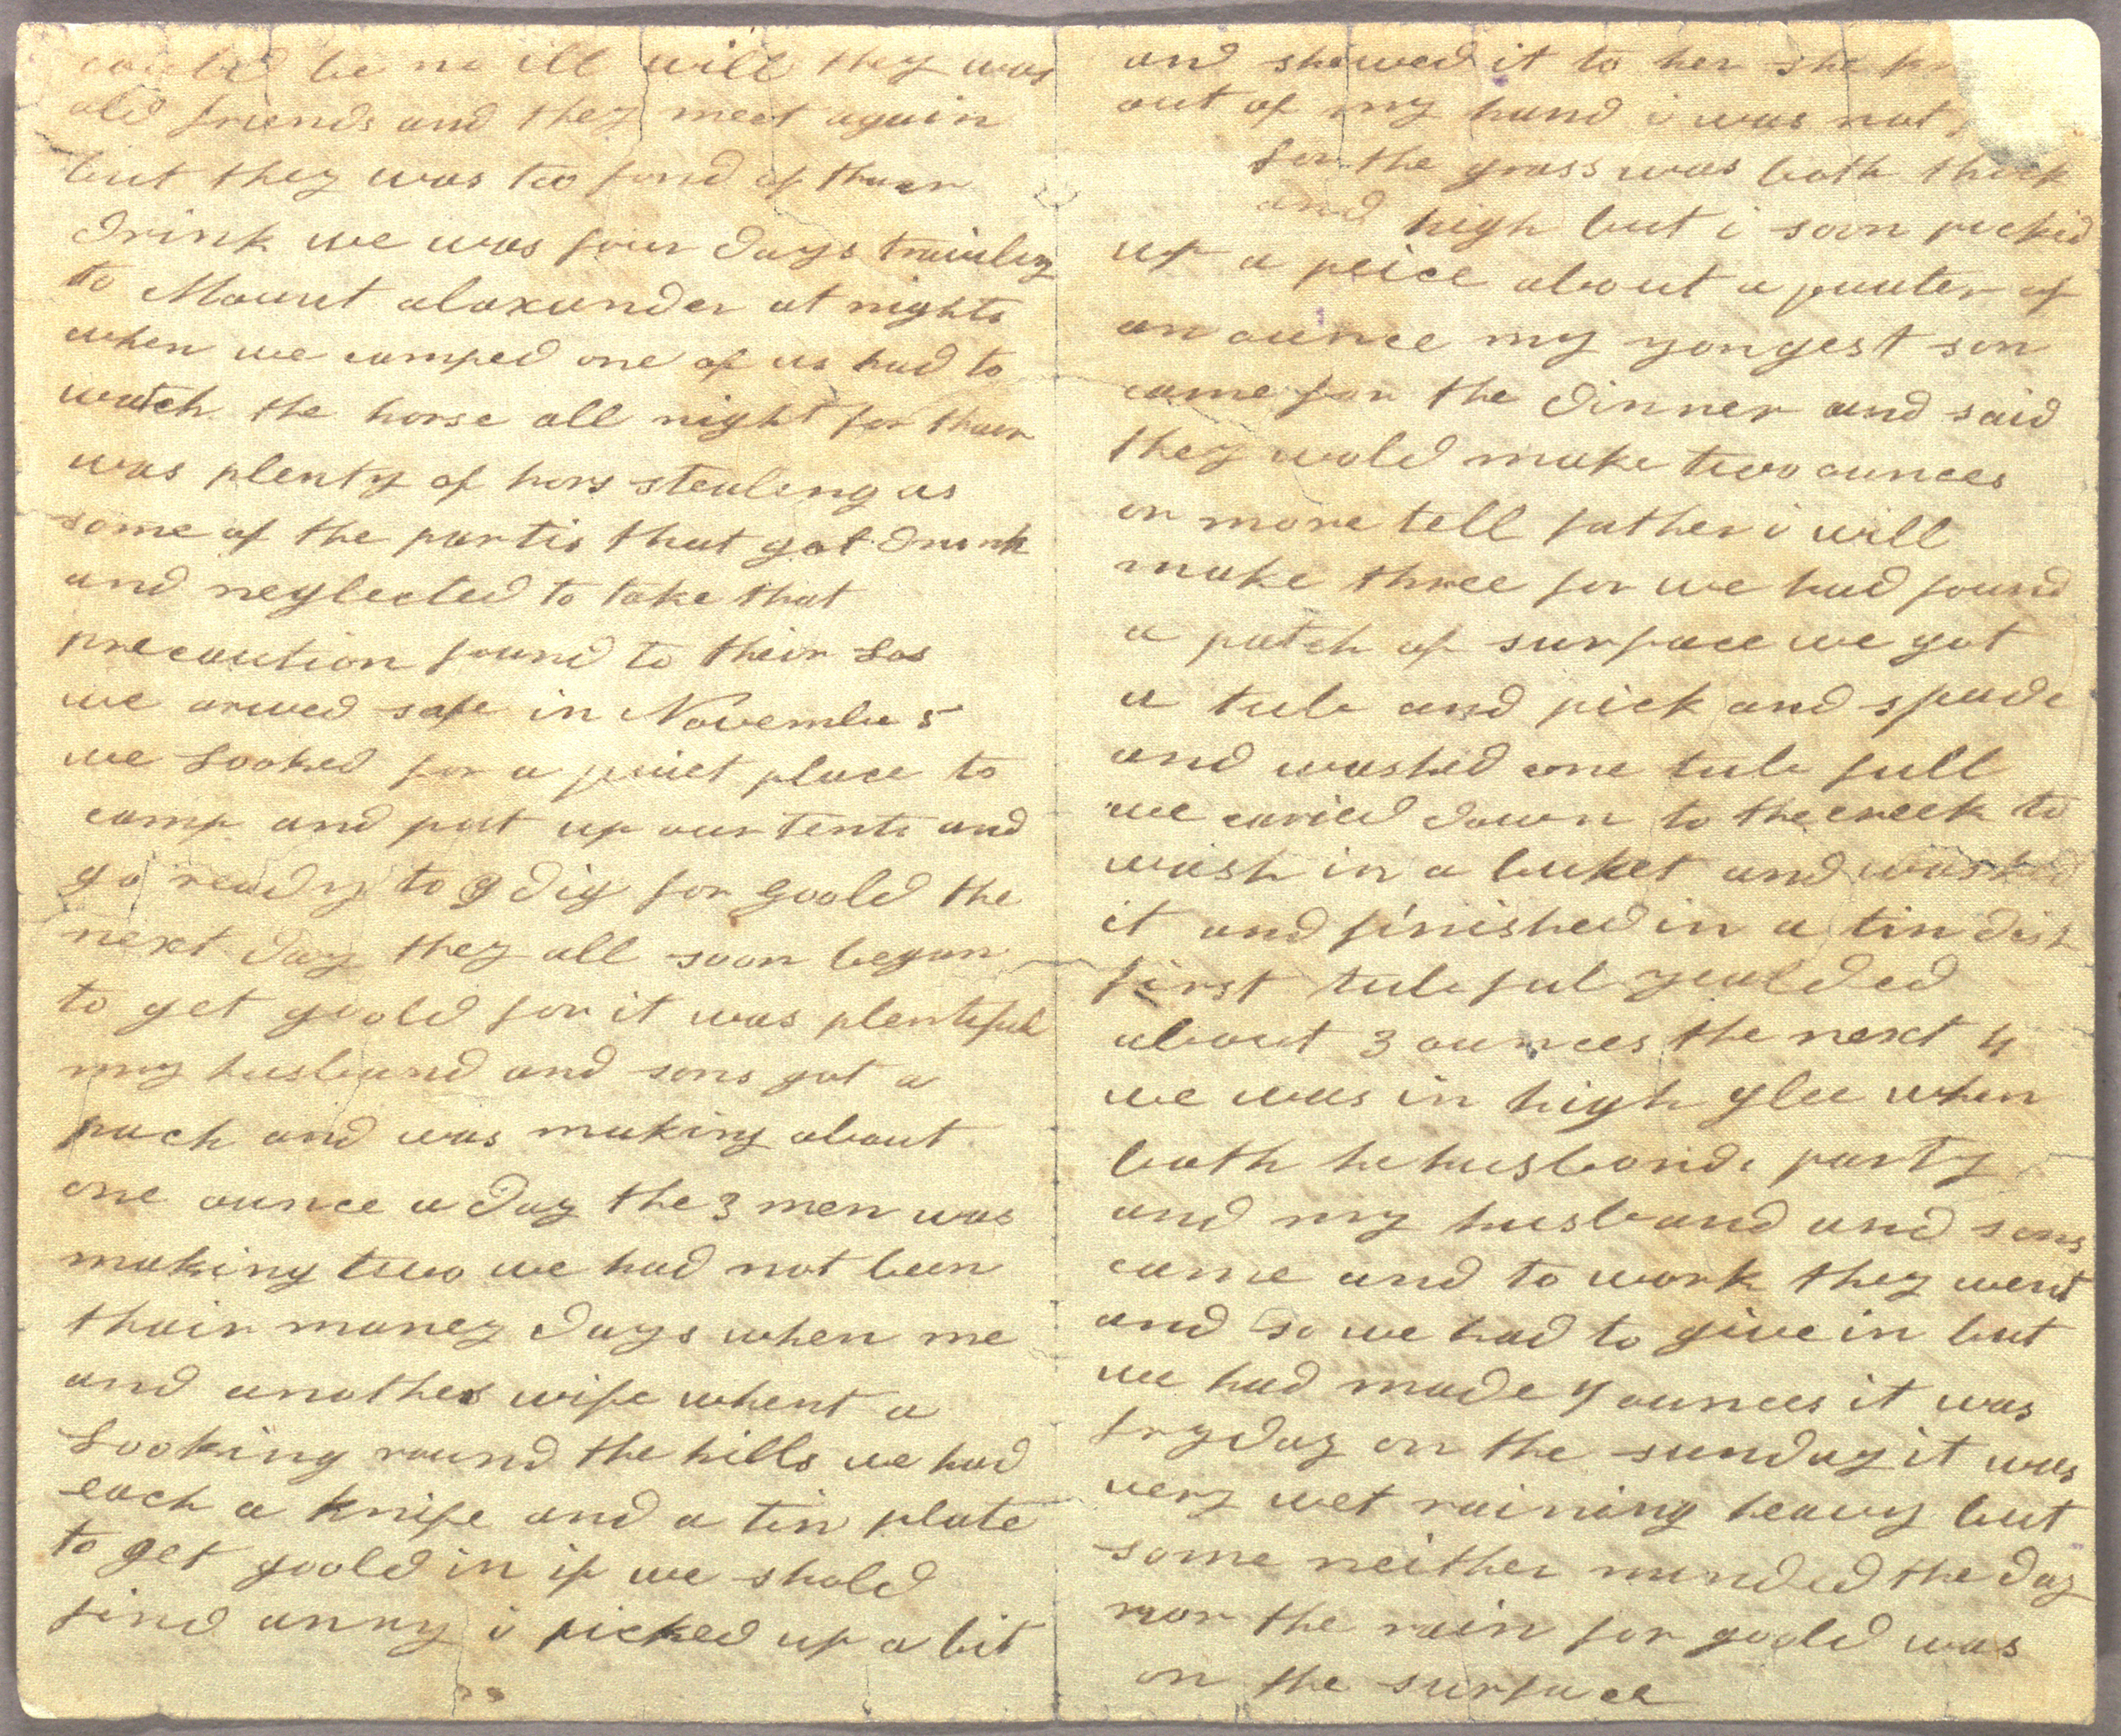 could be no ill will they was
old friends and they meet again
but they was too fond of thaer
drink we was four days traviling
to Mount alaxander at nights
when we camped one of us had to
watch the horse all night for thaer
was plenty of hors stealing as
some of the partis that got drunk
and neglected to take that
precaution found to their Los
we arived safe in November 5
we Looked for a quiet place to
camp and put up our tents and
go ready to dig for goold the
next day they all soon began
to get goold for it was plentiful
my husband and sons got a
pach and was making about
one ounce a day the 3 men was
making two we had not been
thair maney days when me
and another wife whent a
Looking round the hills we had
each a knife and a tin plate
to get goold in if we shold
find anny i picked up a bit
and shewed it to her she
out of my hand i was not
for the grass was both thick
and high but i soon picked
up a peice about a quater of
an ounce my yongest son
came for the dinner and said
they wold make two ounces
or more tell father i will
make three for we had found
a patch of surface we got
a tub and pick and spade
and washed one tub full
we caried down to the creek to
wash in a buket and washed
it and finished in a tin dish
first tub ful yealded
about 3 ounces the next 4
we was in high glee when
both he husbands party
and my husband and sons
came and to work they went
and so we had to give in but
we had made 4 ounces it was
fryday on the sunday it was
very wet raining heavy but
some neither minded the day
nor the rain for goold was
on the surface